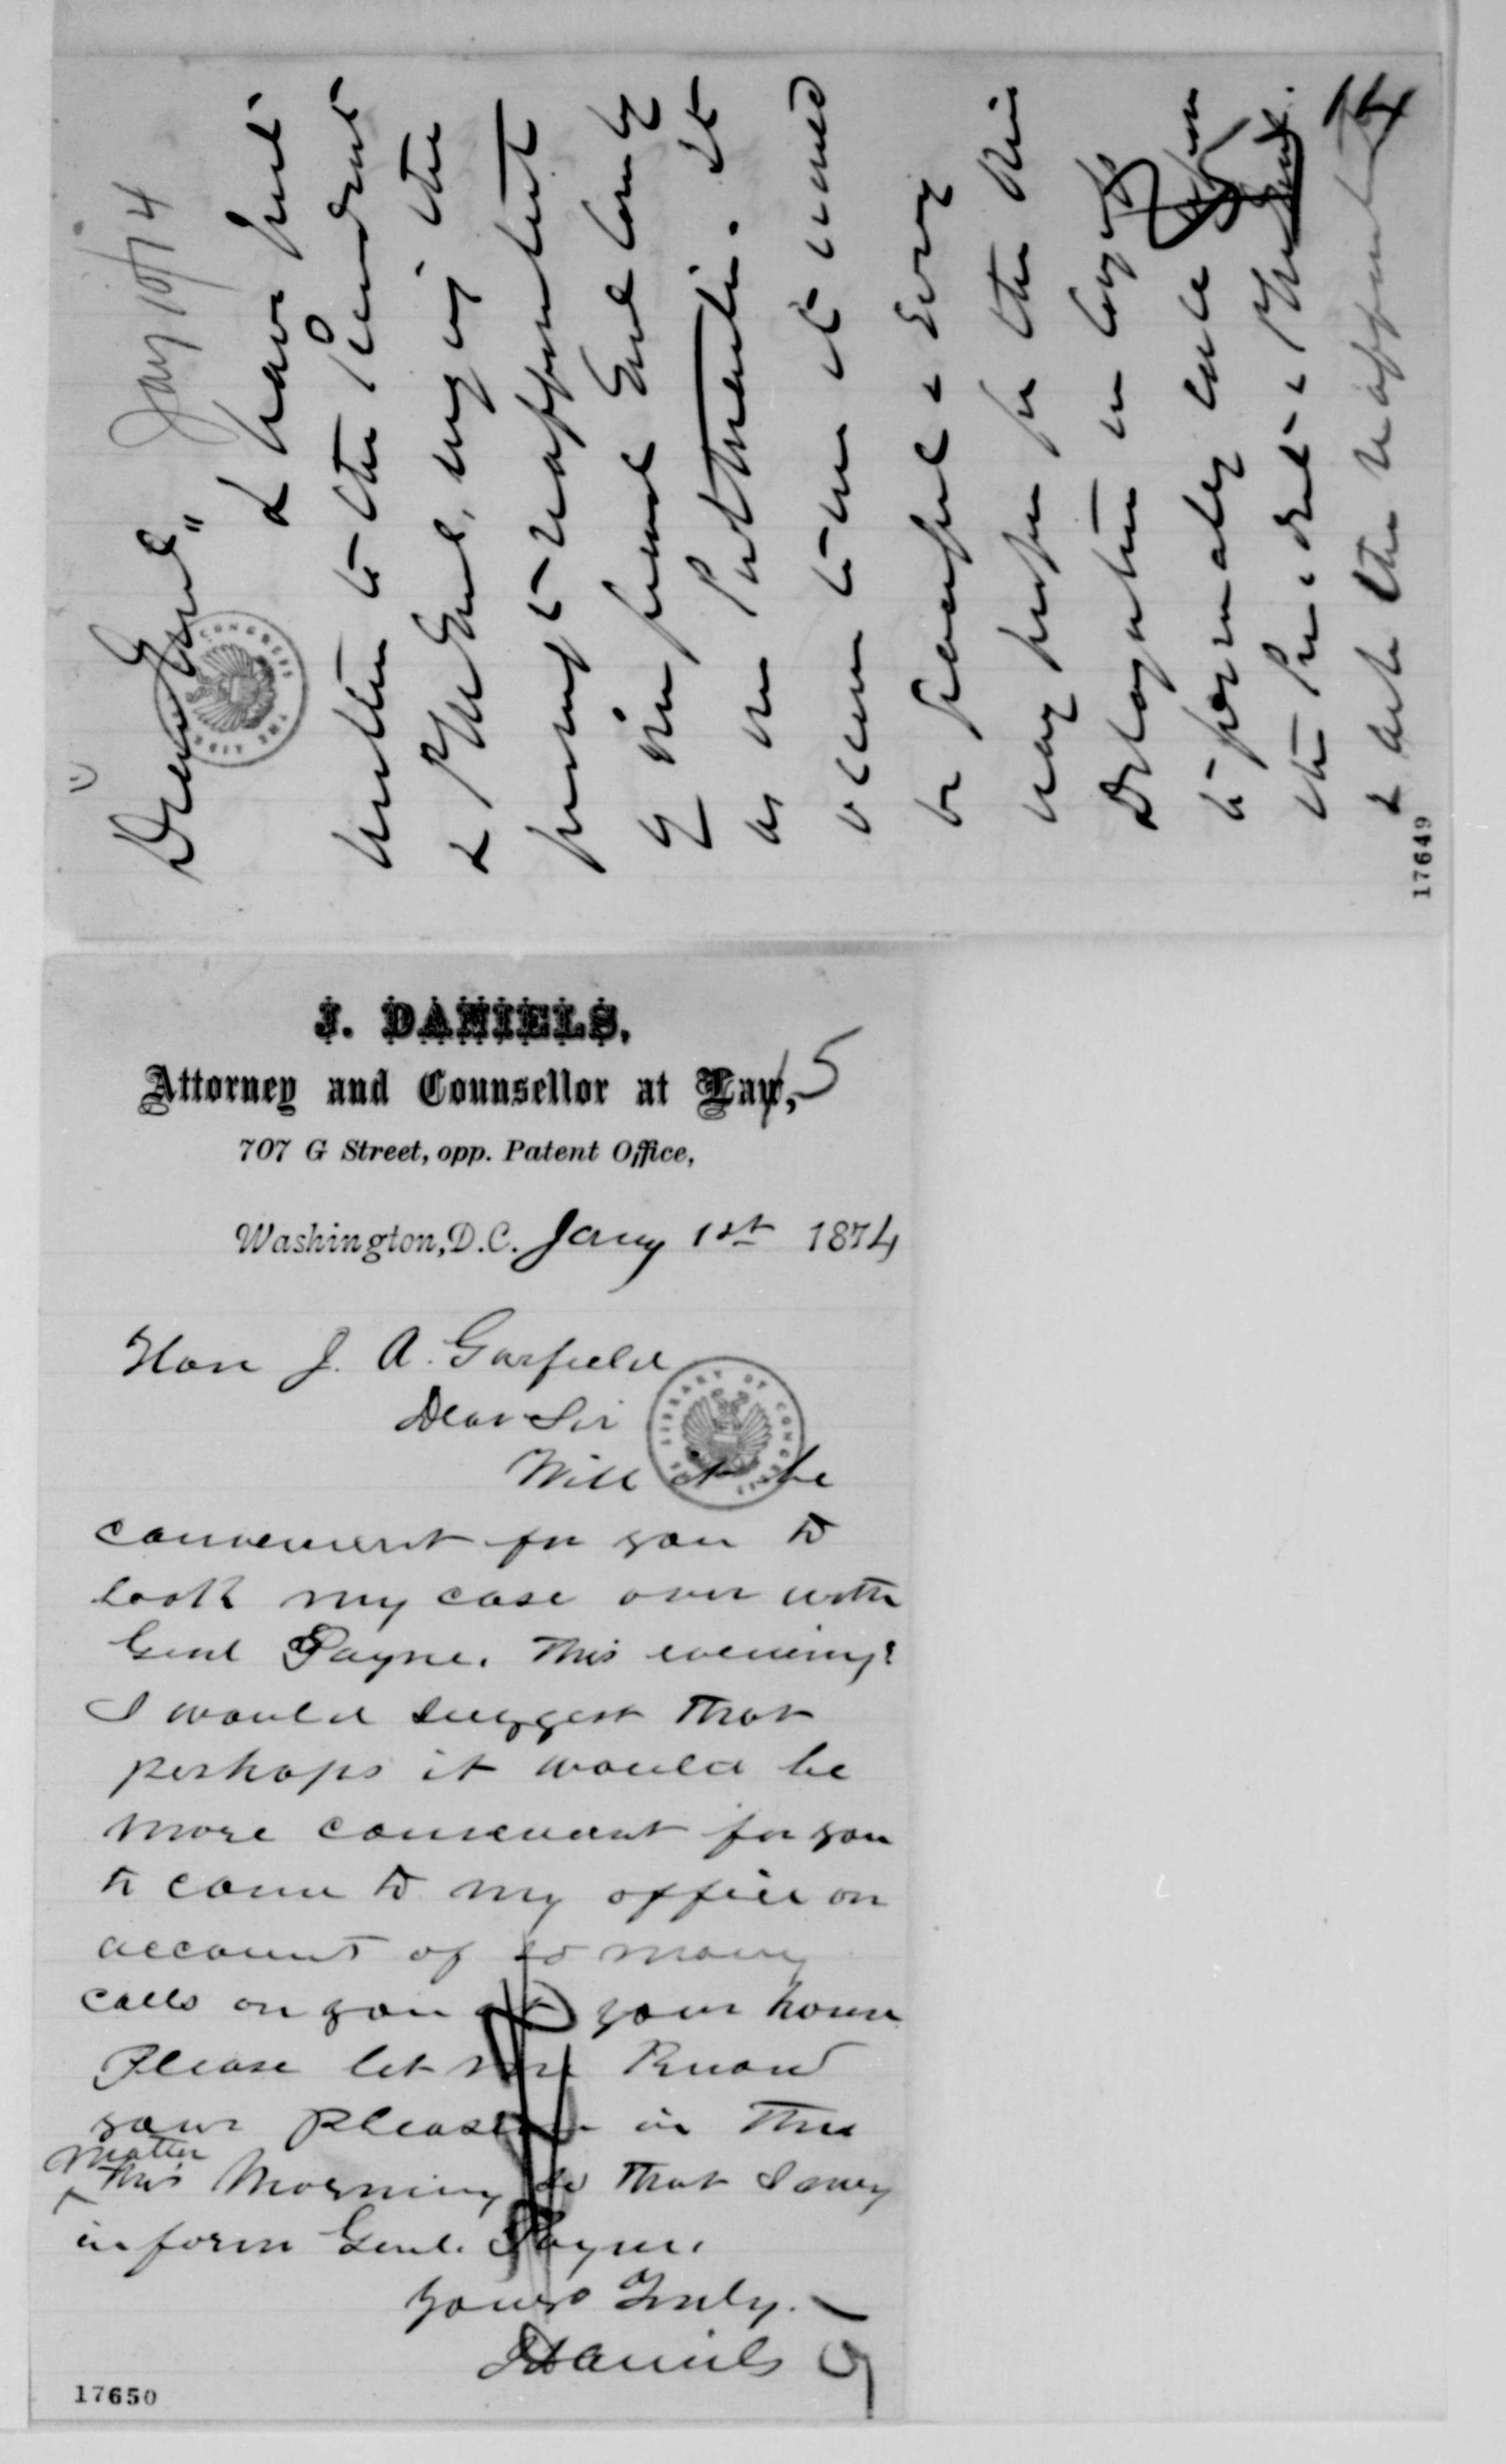 Jany 10/74
Dear Genl"
I have just
written to the President
& PM Genl, urging the
prompt reappointment
of our friend Genl Comly
as our Post Master. It
occurs to me it would
be graceful & every
way proper for the Ohio
Delegation in Congress
to formally call upon
the President & PM Genl.
& ask the reappointment
17649
J. DANIELS,
Attorney and Counsellor at Law,
5
707 G Street, opp. Patent Office,
Washington, D.C. Jany 1st 1874
Hon J. A. Garfield
Dear Sir
Will it be
convenient for you to
look my case over with
Genl Payne. This evening?
I would suggest that
perhaps it would be
more convenient for you
to come to my office on
account of so many
calls on you at your house
Please let me Know
your pleasure in this
matter
this Morning so that I may
inform Genl. Payne.
Yours Truly.
J Daniels
17650
THE LIBRARY OF CONGRESS